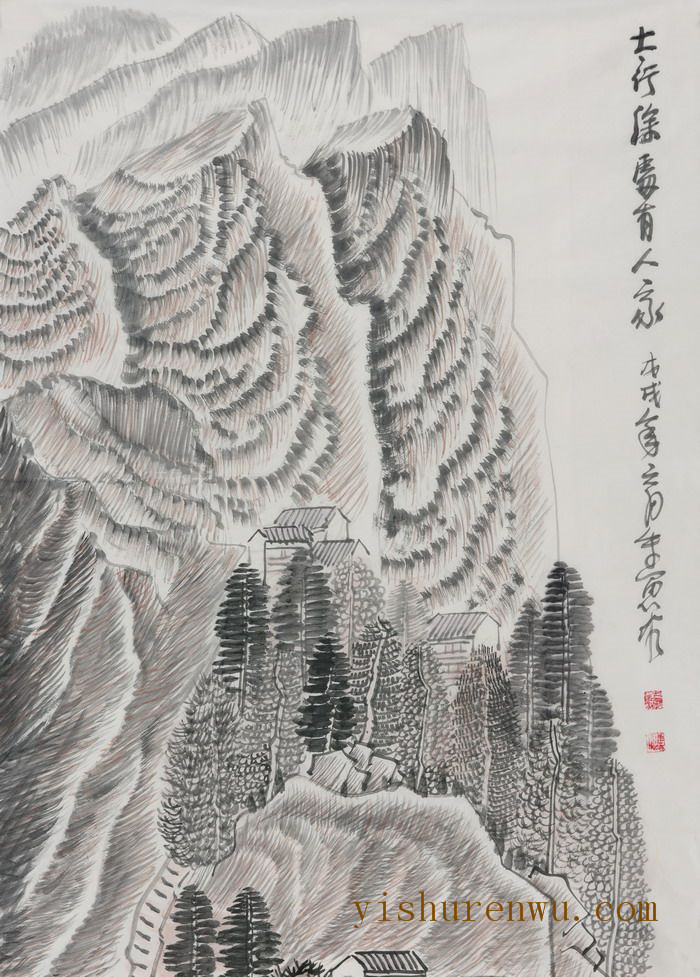 太行深處有人家 戊戌年六月
yishurenwu.com